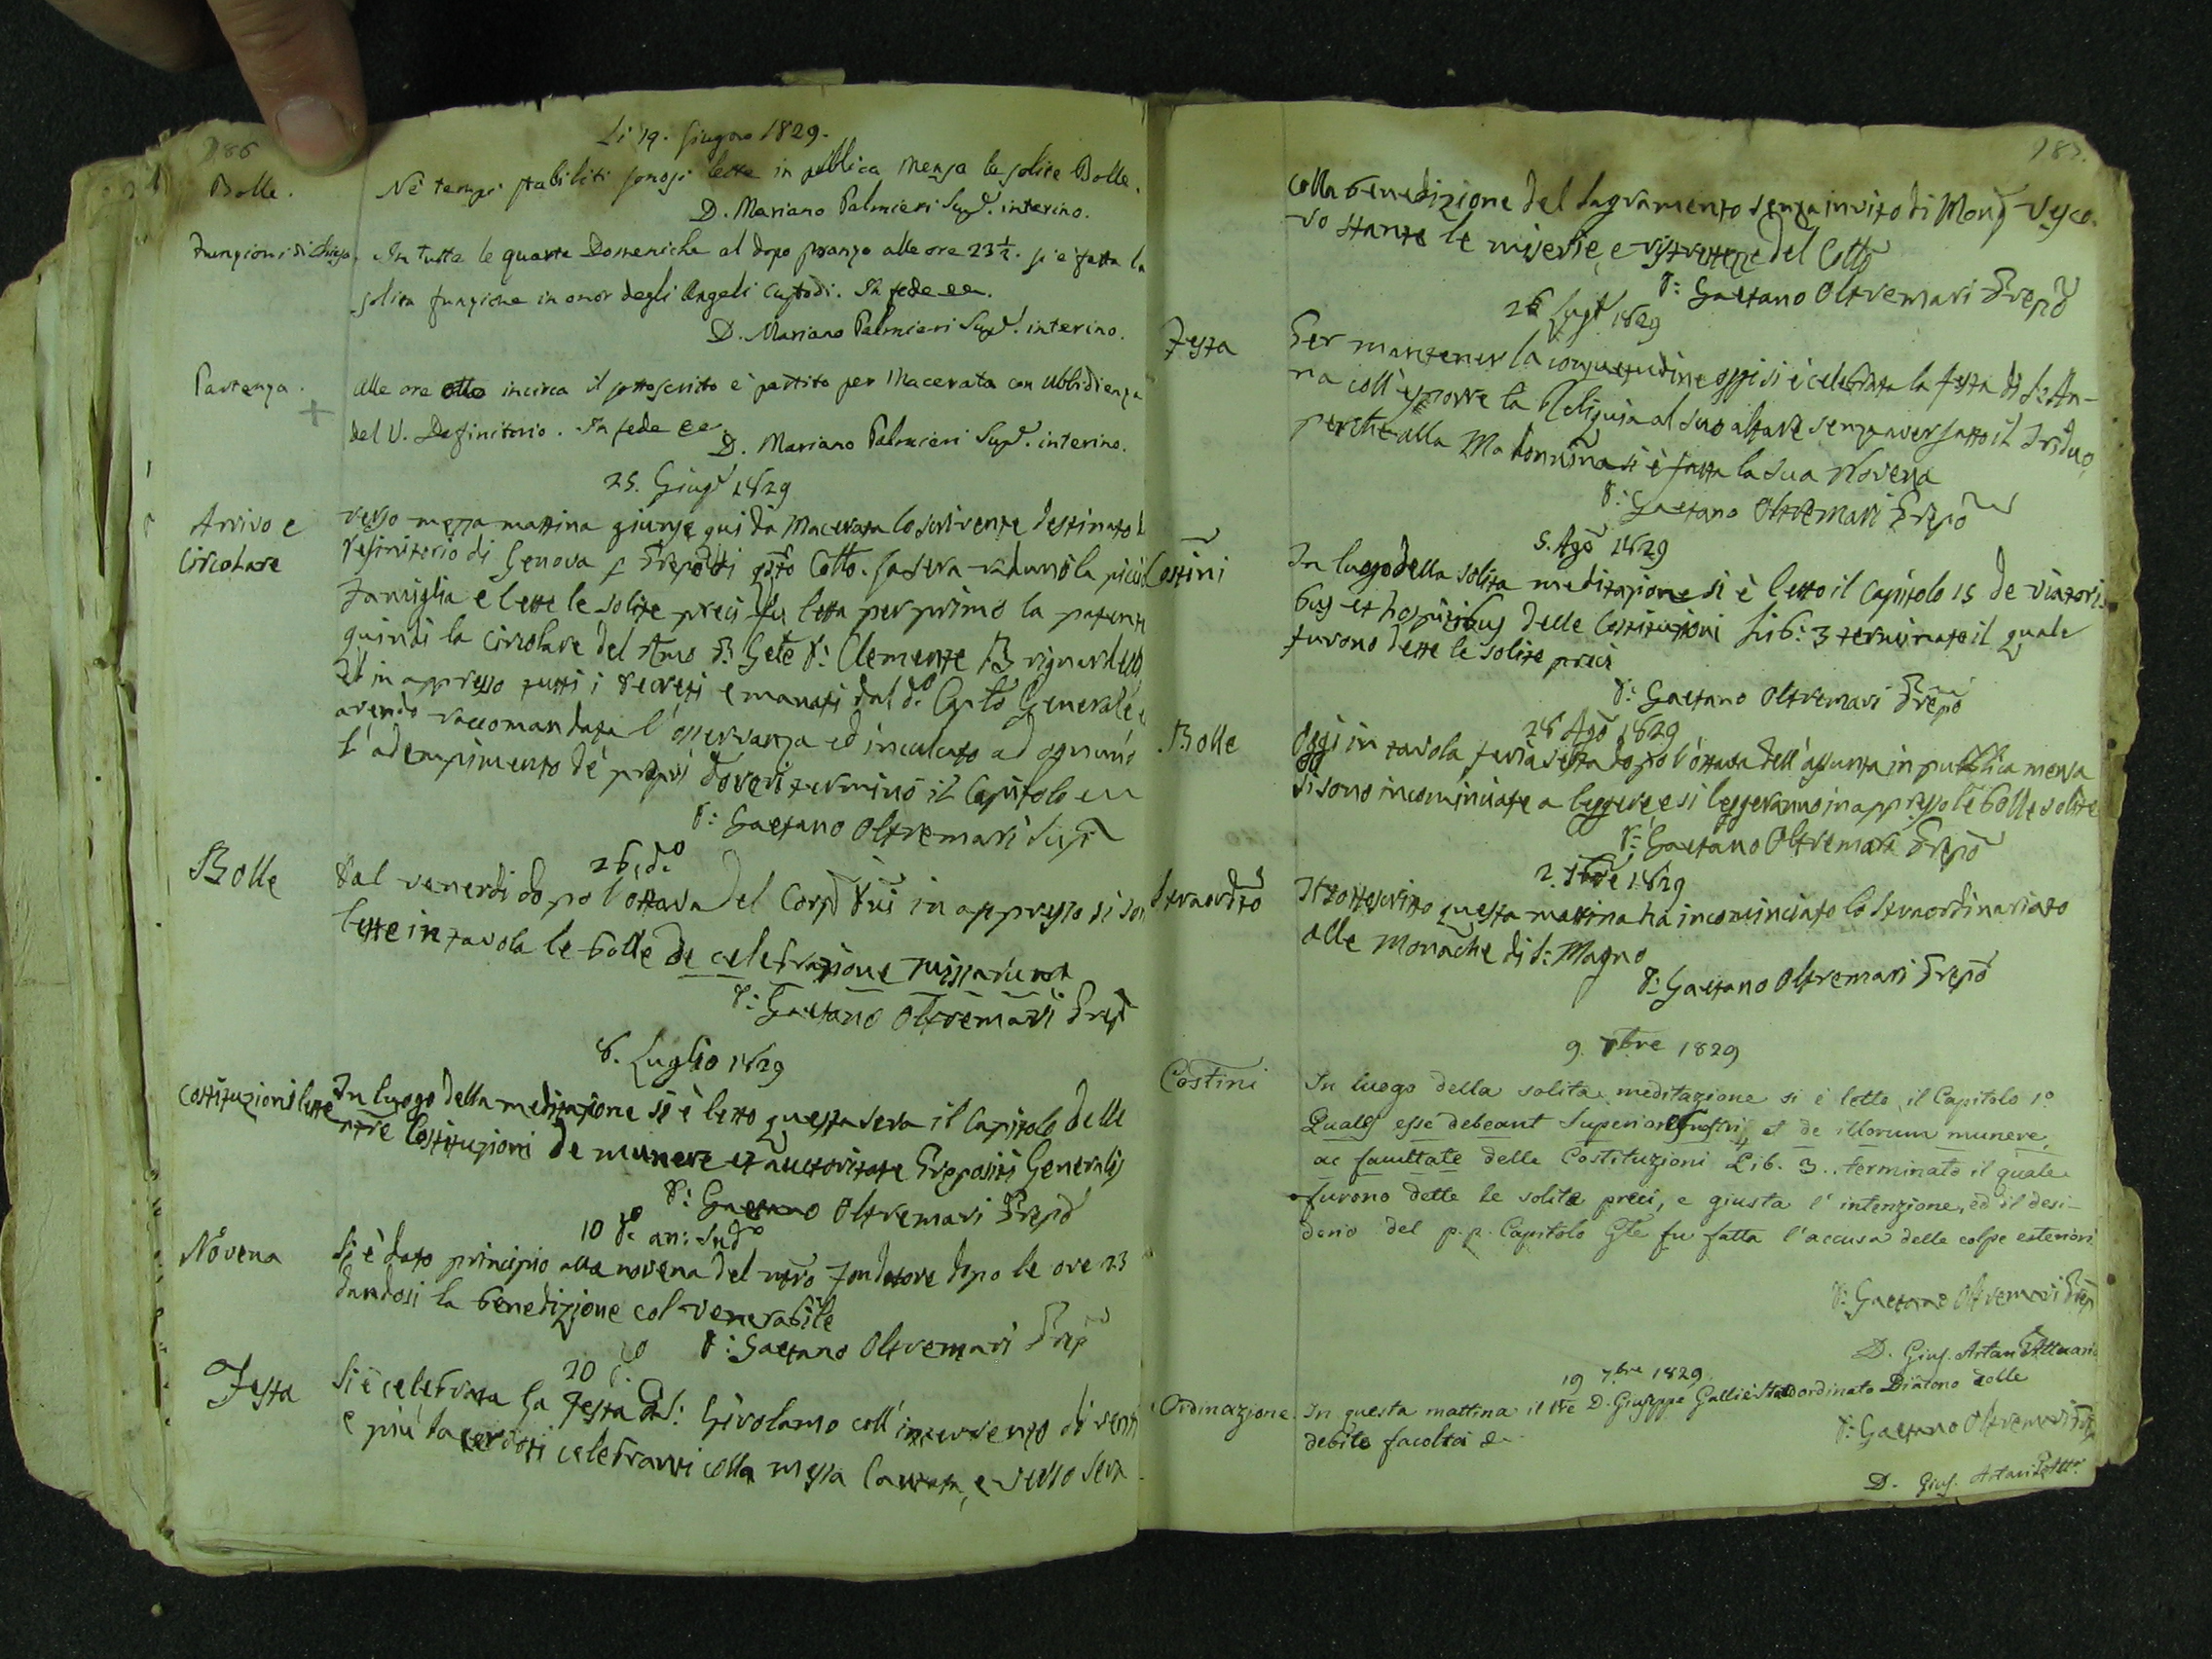 186
Li 19. Giugno 1829.
Bolle. Nè tempi stabiliti sonosi lette in pubblica Mensa le solite Bolle.
D. Mariano Palmieri Supe. interino.
Funzioni di Chiesa. In tutte le quarte Domeniche al dopo pranzo alle ore 23 1/2. si è fatta la
solita funzione in onor degli Angeli Custodi. In fede
D. Mariano Palmieri Supe. interino.
Partenza. Alle ore otto incirca il sottoscritto è partito per Macerata con ubbidienza
del V. Definitorio. In fede
D. Mariano Palmieri Supe. interino.
25. Giugo 1829
Arrivo e verso mezza mattina giunse qui da Macerata lo scrivente destinato
Circolare Definitorio di Genova Prepo di qsto Colto. la sera radunò la picciol
Famiglia e lette le solite preci fu letta per primo la patente
quindi la circolare del Rmo P. Gele D: Clemente Brignardelli
ed in appresso tutti i decreti emanati dal do. Caplo Generale
avendo raccomandata l'osservanza ed inculcato ad ognuno
l'adempimento de' proprj doveri terminò il Capitolo
D: Gaetano Oltremari Supr
26, do
Bolle Dal venerdì dopo l'ottava del Corpo Dñi in appresso si son
lette in tavola le bolle de celebrazione missarum
D: Gaetano Oltremari Prep
6. Luglio 1829
Costituzioni lette In luogo della meditazione si è letto questa sera il Capitolo delle
nre Costituzioni de munere et auctoritate Prepositi Generalis
D: Gaetano Oltremari Prepo
10 do an: sudo
Novena Si è dato principio alla novena del nro Fondatore dopo le ore 23
dandosi la benedizione col venerabile
D: Gaetano Oltremari Prep
20 do
Festa Si è celebrata la Festa di S: Girolamo coll'intervento di venti
e più sacerdoti celebranti colla messa cantata, e verso sera
187.
colla benedizione del Sagramento senza invito di Mons Vesco-
vo stante le miserie, e ristrettezze del Collo
D: Gaetano Oltremari Prepo
26 Lugo 1829
Festa Per mantener la consuetudine oggi si è celebrata la festa di S: An-
na coll'esporre la Reliquia al suo altare senza aver fatto il Triduo,
perché alla Madonnina si è fatta la sua Novena
D: Gaetano Oltremari Prepo
5. Ago 1829
Costini In luogo della solita meditazione si è letto il Capitolo 15 de viatori-
bus et hospitibus delle Costituzioni Lib: 3 terminato il quale
furono dette le solite preci
D: Gaetano Oltremari Prepo
28 Ago 1829
Bolle Oggi in tavola feria sesta dopo l'ottava dell'assunta in pubblica mensa
si sono incominciate a leggere, e si leggeranno in appresso le bolle solite
D: Gaetano Oltremari Prepo
2. 7bre 1829
Straordro Il sottoscritto questa mattina ha incominciato lo straordinariato
alle Monache di S: Magno
D: Gaetano Oltremari Prepo
9. 7bre 1829
Costini In luogo della solita meditazione si è letto il Capitolo 1o
Quales esse debeant Superiores nostri, et de illorum munere,
ac facultate delle Costituzioni Lib. 3. terminato il quale
furono dette le solite preci, e giusta l'intenzione, ed il desi-
derio del p. p. Capitolo Gle fu fatta l'accusa delle colpe esteriori
D: Gaetano Oltremari Prep
D. Gius. Artari Attuario
19 7bre 1829
Ordinazione. In questa mattina il D. Giuseppe è stato ordinato Diacono colle
debite facoltà
D: Gaetano Oltremari Prep
D. Gius. Artari Atto.